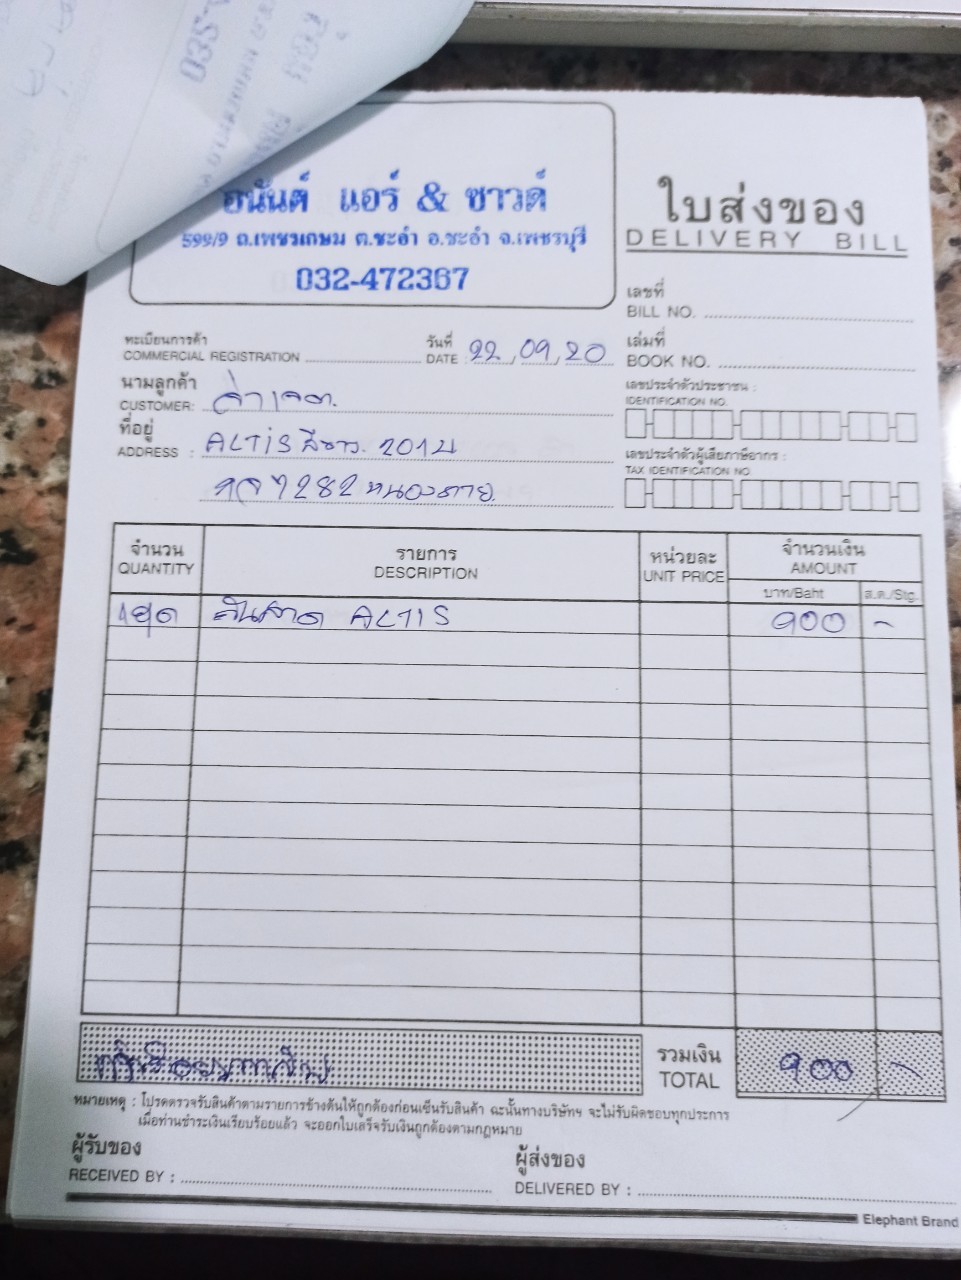 อนันต์ แอร์ & ซาวด์
599/9 ถ.เพชรเกษม ต.ชะอำ อ.ชะอำ จ.เพชรบุรี
032-472367
ใบส่งของ
DELIVERY BILL
เลขที่
BILL NO.
ทะเบียนการค้า
COMMERCIAL REGISTRATION
วันที่
DATE 22,09,20
เล่มที่
BOOK NO.
นามลูกค้า
CUSTOMER:
ที่อยู่
ADDRESS : ALTIS สีขาว. 201
7282 หนองตาย
เลขประจำตัวประชาชน :
IDENTIFICATION NO.
เลขประจำตัวผู้เสียภาษีอากร :
TAX IDENTIFICATION NO.
จำนวน
QUANTITY
รายการ
DESCRIPTION
หน่วยละ
UNIT PRICE
จำนวนเงิน
AMOUNT
บาท/Baht ส.ต./Stg.
1ชุด ALTIS 900 -
เก้าร้อยบาทถ้วน
รวมเงิน
TOTAL
900 -
หมายเหตุ : โปรดตรวจรับสินค้าตามรายการข้างต้นให้ถูกต้องก่อนเซ็นรับสินค้า ฉะนั้นทางบริษัทฯ จะไม่รับผิดชอบทุกประการ
เมื่อท่านชำระเงินเรียบร้อยแล้ว จะออกใบเสร็จรับเงินถูกต้องตามกฎหมาย
ผู้รับของ
RECEIVED BY :
ผู้ส่งของ
DELIVERED BY :
Elephant Brand